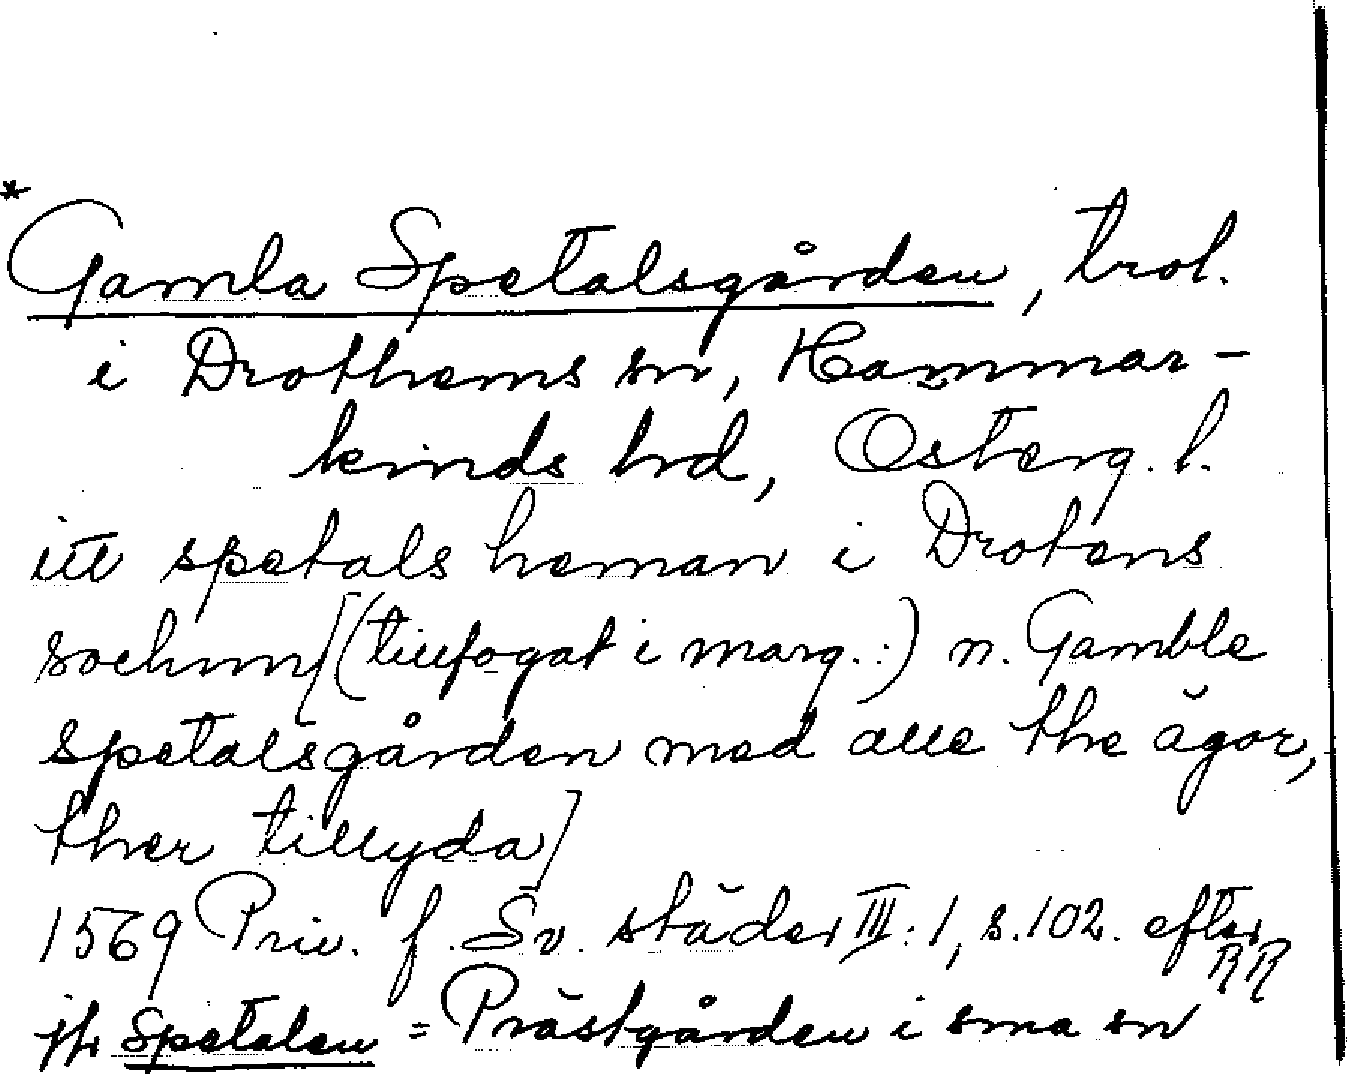 *Gamla Spetalsgården, trol.
i Drothems sn, Hammar-
kinds hd, Österg. l.
itt spetals heman i Drotens
sochnn [(tillfogat i marg.:) n. Gamble
spetalsgården med alle the ägor,
ther tillyda]
1569 Priv. f. Sv. städer III:1, s.102. efter
RR
jfr Spetalen = Prästgården i sma sn